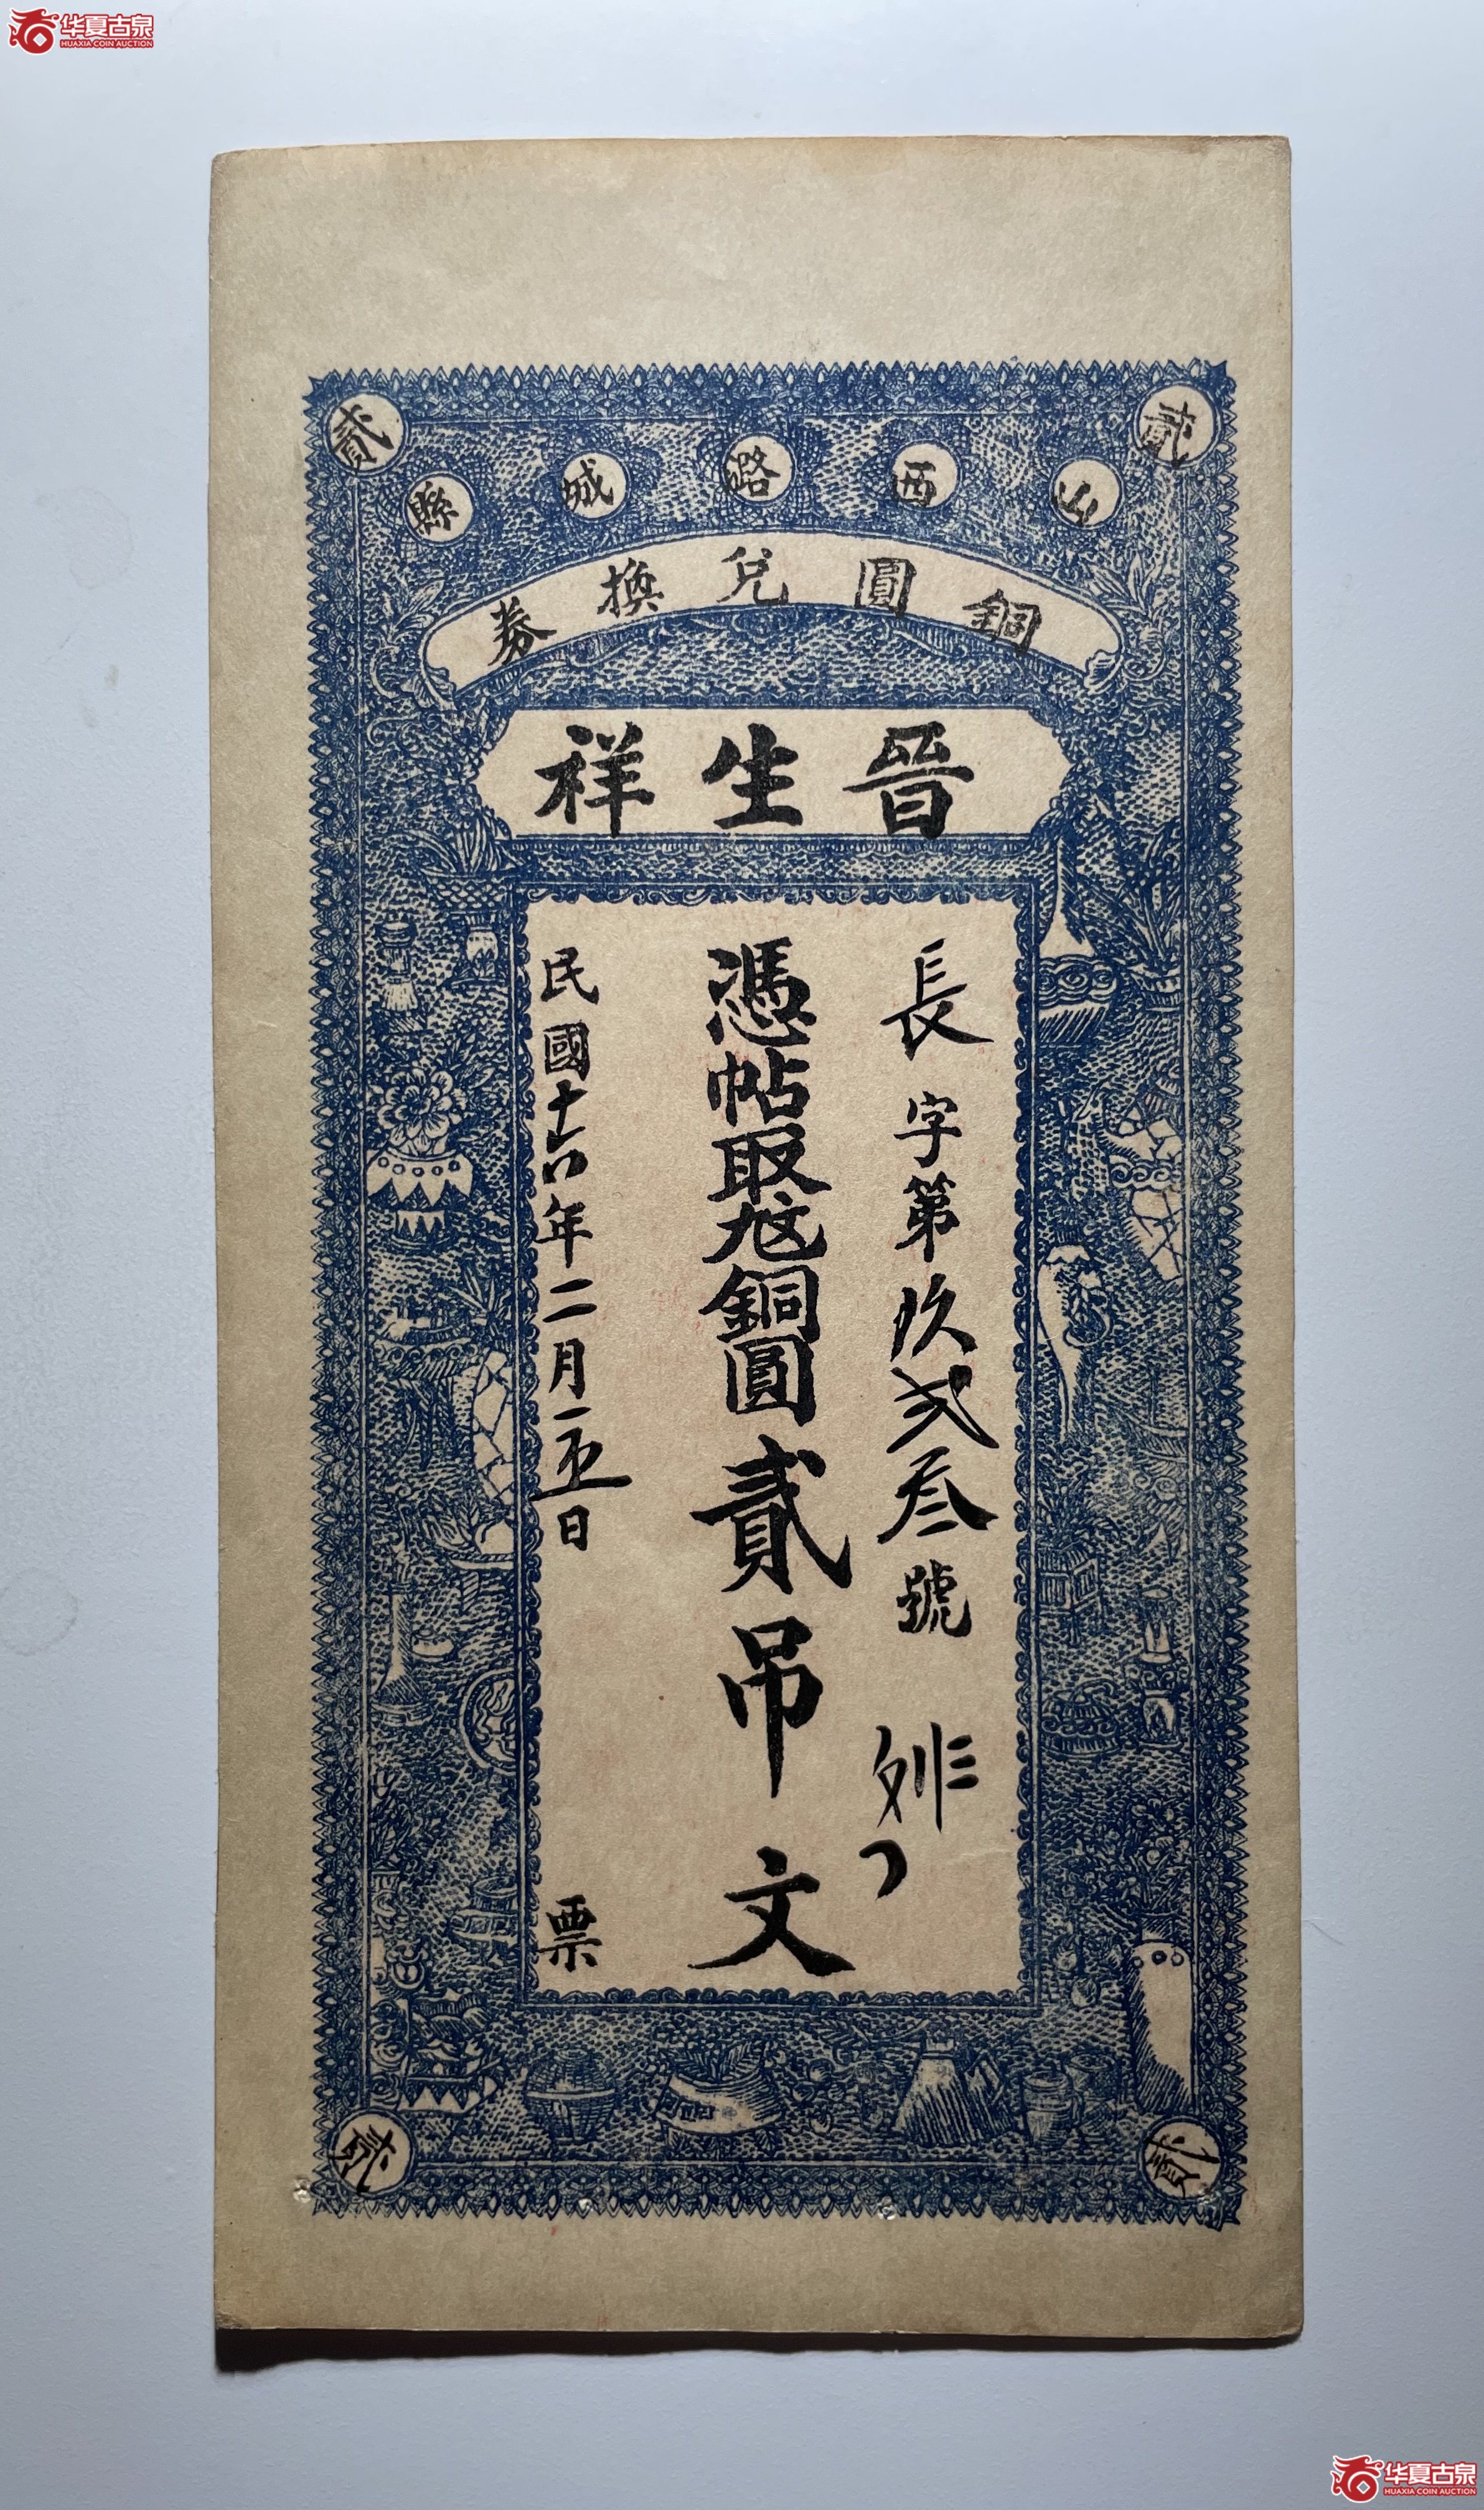 华夏古泉
HUAXIA COIN AUCTION
貳
貳
山西潞城縣
銅圓兌換券
晉生祥
長字第玖貳叁號
憑帖取九文銅圓貳吊文
民國十六年二月一五日
票
貳
貳
华夏古泉
HUAXIA COIN AUCTION